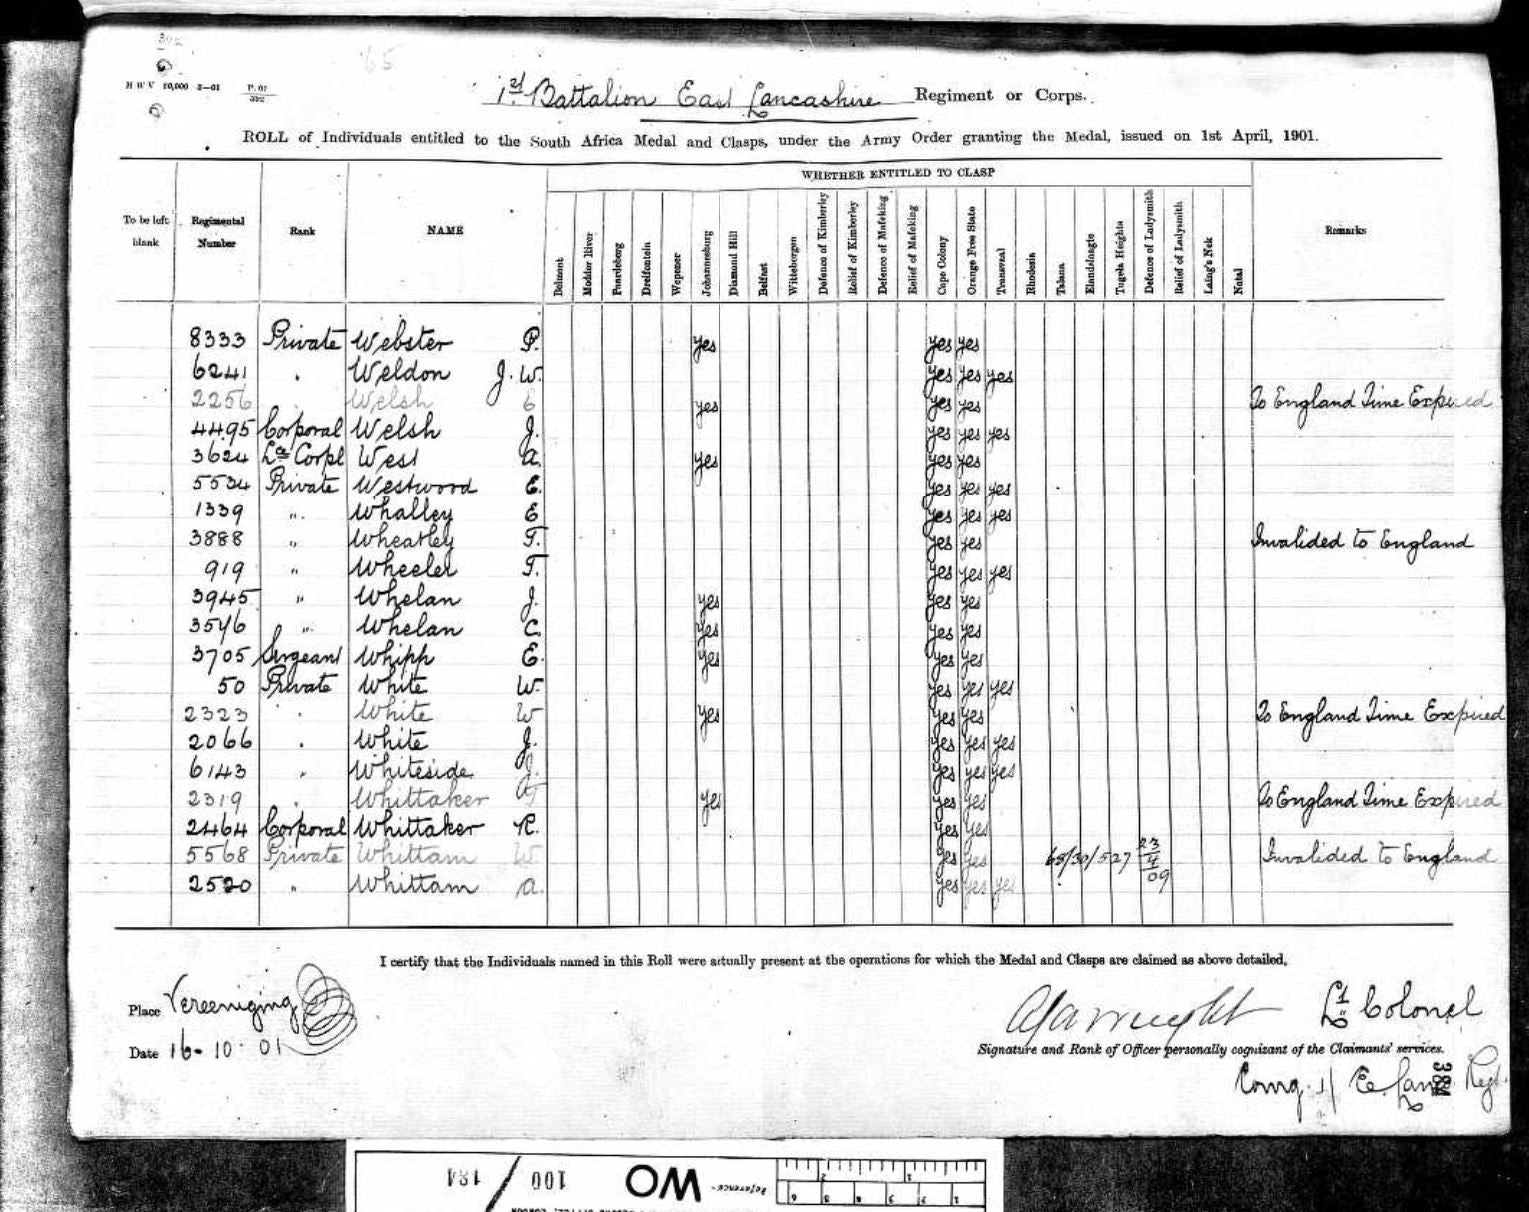 392
65
H W V 10,000 3—01 P. 01
392
1st Battalion East Lancashire Regiment or Corps.
ROLL of Individuals entitled to the South Africa Medal and Clasps, under the Army Order granting the Medal, issued on 1st April, 1901.
WHETHER ENTITLED TO CLASP
To be left blank Regimental Number Rank NAME Belmont Modder River Paardeberg Dreifontein Wepener Johannesburg Diamond Hill Belfast Wittebergen Defence of Kimberley Relief of Kimberley Defence of Mafeking Relief of Mafeking Cape Colony Orange Free State Transvaal Rhodesia Talana Elandslaagte Tugela Heights Defence of Ladysmith Relief of Ladysmith Laing's Nek Natal Remarks
8333 Private Webster P. yes yes yes
6241 " Weldon J. W. yes yes yes
2256 Welsh yes yes yes To England Time Expired
4495 Corporal Welsh J. yes yes yes
3624 Lce Corpl West A. yes yes yes
5534 Private Westwood E. yes yes yes
1339 " Whalley E yes yes yes
3888 " Wheatley T. yes yes Invalided to England
919 " Wheeler T. yes yes yes
3945 " Whelan J. yes yes yes
3546 " Whelan C. yes yes yes
3705 Sergeant Whipp E. yes yes yes
50 Private White W. yes yes yes
2323 " White W yes yes yes To England Time Expired
2066 " White J. yes yes yes
6143 " Whiteside J. yes yes yes
2319 " Whittaker T yes yes yes To England Time Expired
2464 Corporal Whittaker R. yes yes
5568 Private Whittam W. yes yes 68/30/527 23/4/09 Invalided to England
2520 " Whittam A. yes yes yes
I certify that the Individuals named in this Roll were actually present at the operations for which the Medal and Clasps are claimed as above detailed.
Place Vereeniging
Lt Colonel
Date 16-10-01
Signature and Rank of Officer personally cognizant of the Claimants' services.
Comg. 1/ E. Lan Regt.
384
WO 100 / 184
Reference:-